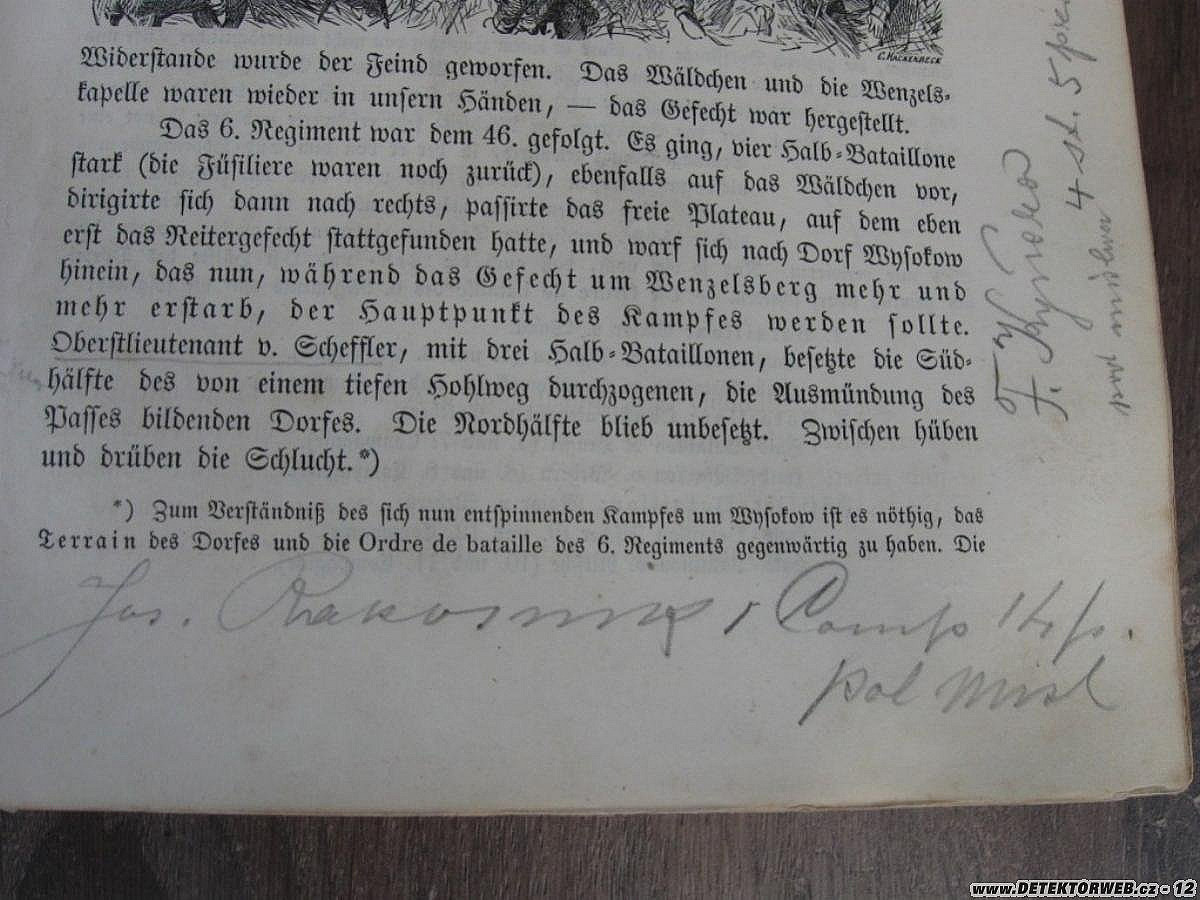 C. HACKENBECK
Widerstande wurde der Feind geworfen. Das Wäldchen und die Wenzels-
kapelle waren wieder in unsern Händen, — das Gefecht war hergestellt.
Das 6. Regiment war dem 46. gefolgt. Es ging, vier Halb-Bataillone
stark (die Füsiliere waren noch zurück), ebenfalls auf das Wäldchen vor,
dirigirte sich dann nach rechts, passirte das freie Plateau, auf dem eben
erst das Reitergefecht stattgefunden hatte, und warf sich nach Dorf Wysokow
hinein, das nun, während das Gefecht um Wenzelsberg mehr und
mehr erstarb, der Hauptpunkt des Kampfes werden sollte.
Oberstlieutenant v. Scheffler, mit drei Halb-Bataillonen, besetzte die Süd-
hälfte des von einem tiefen Hohlweg durchzogenen, die Ausmündung des
Passes bildenden Dorfes. Die Nordhälfte blieb unbesetzt. Zwischen hüben
und drüben die Schlucht.*)
*) Zum Verständniß des sich nun entspinnenden Kampfes um Wysokow ist es nöthig, das
Terrain des Dorfes und die Ordre de bataille des 6. Regiments gegenwärtig zu haben. Die
Jos.
4 st. 5
www.DETEKTORWEB.cz - 12